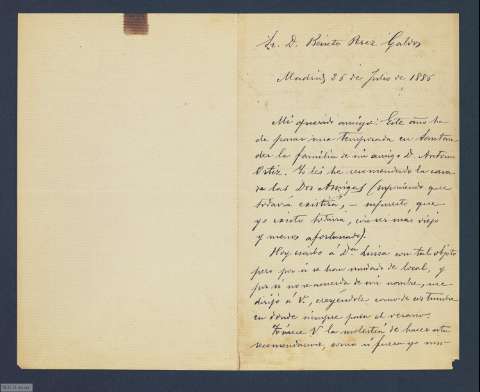 Sr. D. Benito Perez Galdos
Madrid, 26 de Julio de 1886
Mi querido amigo: Este año ha
de pasar una temporada en Santan-
der la familia de mi amigo D. Antonio
Ortiz. Yo les he recomendado la casa
de las Dos Amigas (suponiendo que
todavia existirá, – supuesto que
yo existo todavia, aun más viejo
y menos afortunado).
Hoy escribo á Dña Luisa con tal objeto
pero por si se han mudado de local, y
por si no se acuerda de mi nombre, me
dirijo á V., creyéndole como de costumbre
en donde siempre pasa el verano.
Tómese V la molestia de hacer esta
recomendacion, como si fuera yo mis-